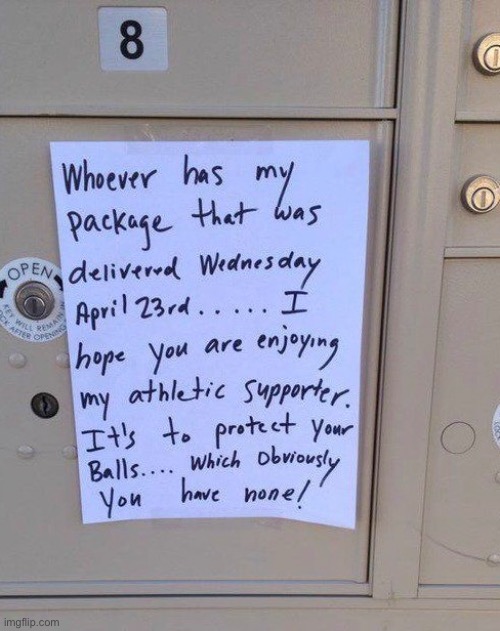 8
Whoever has my
package that was
delivered Wednesday
April 23rd..... I
hope you are enjoying
my athletic supporter.
It's to protect your
Balls.... which Obviously
You have none!
OPEN
KEY WILL REMAIN
LOCK AFTER OPENING
imgflip.com